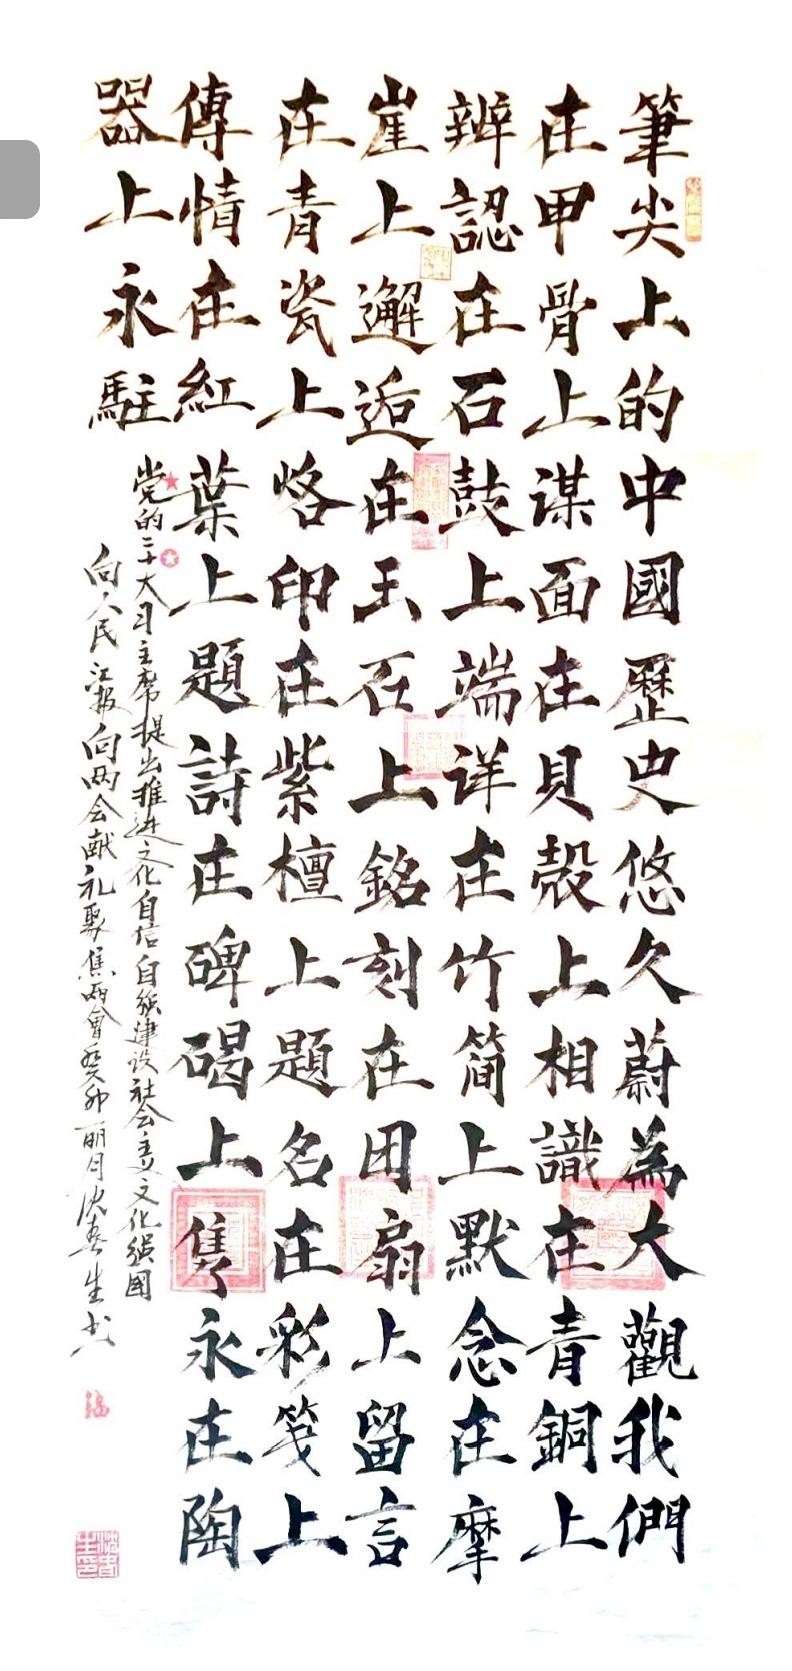 筆尖上的中國歷史悠久蔚為大觀我們
在甲骨上谋面在貝殼上相識在青銅上
辨認在石鼓上端详在竹简上默念在摩
崖上邂逅在玉石上銘刻在团扇上留言
在青瓷上烙印在紫檀上題名在彩笺上
傳情在紅葉上題詩在碑碣上隽永在陶
器上永駐
党的二十大习主席提出推进文化自信自强建设社会主义文化强国
向人民汇报向两会献礼聚焦两會癸卯丽月沈春生书